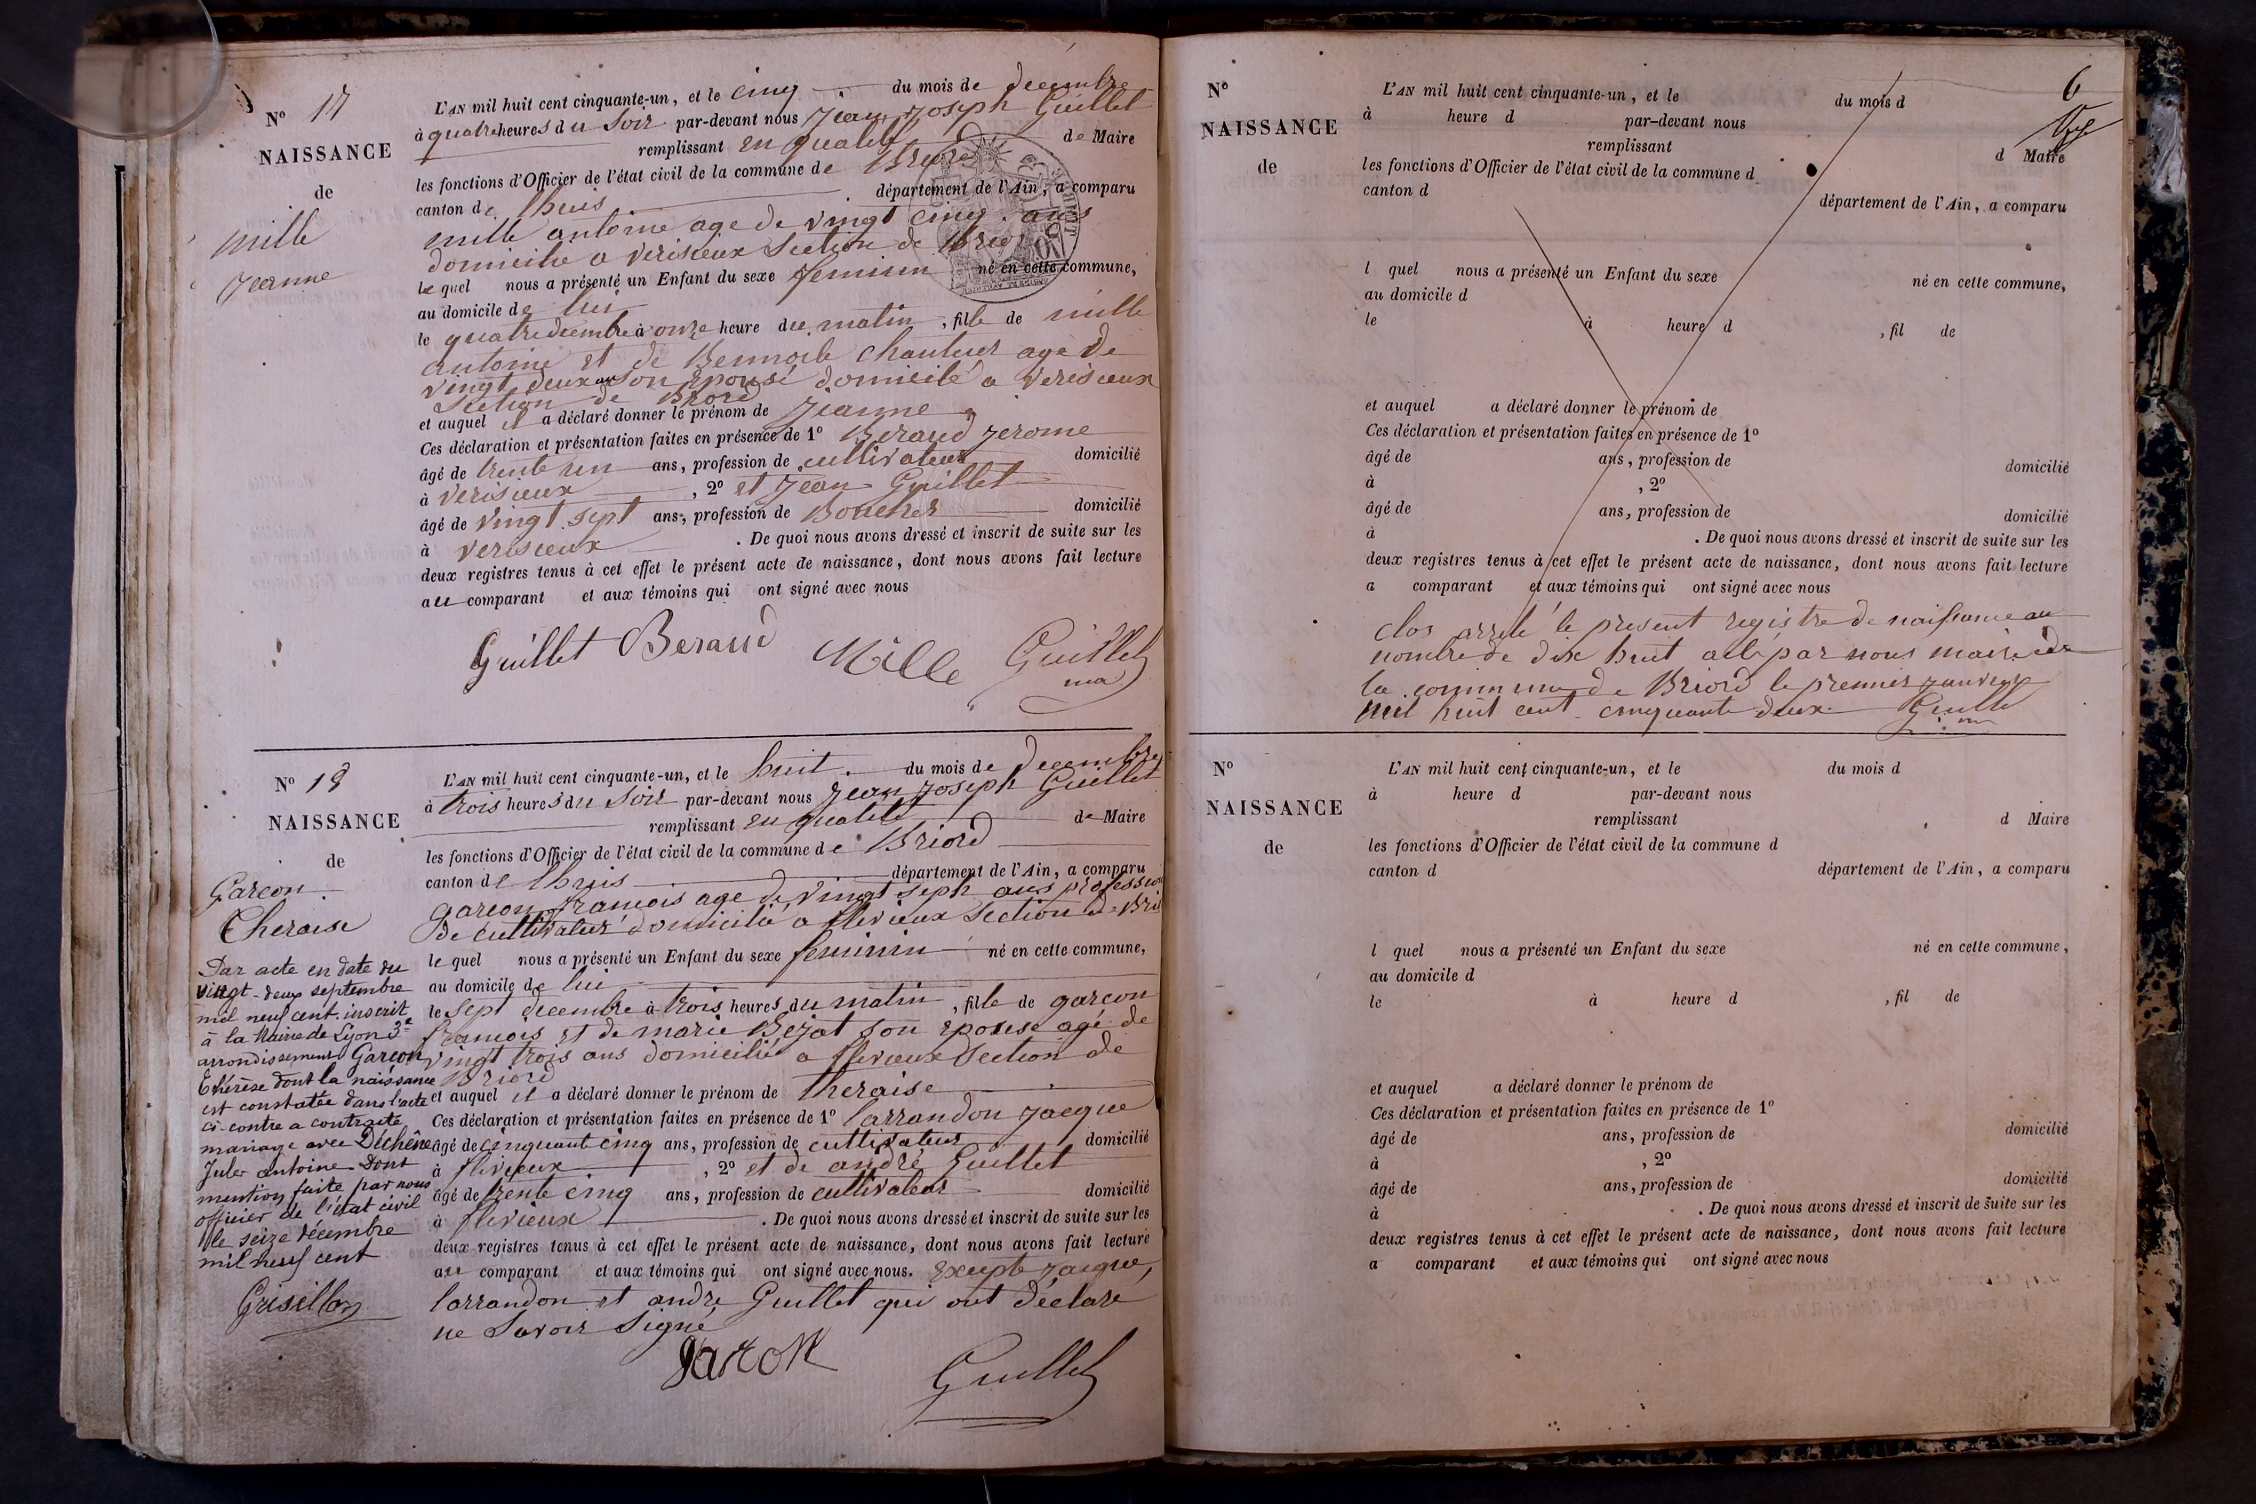 N° 17
NAISSANCE
de
Mille
Jeanne
L'AN mil huit cent cinquante-un, et le cinq du mois de decembre
à quatre heures du soir par-devant nous Jean Joseph Guillet
remplissant en qualité de Maire
les fonctions d'Officier de l'état civil de la commune de Briord
canton de lhuis département de l'Ain, a comparu
mille antoine age de vingt cinq ans
domicilie a verisieux section de Briord
le quel nous a présenté un Enfant du sexe feminin né en cette commune,
au domicile de lui
le quatre decembre à onze heure du matin, fille de mille
antoine et de Bennoite Chanteur age de
vingt deux ans son epouse domicilé a verisieux
section de Briord
et auquel il a déclaré donner le prénom de Jeanne
Ces déclaration et présentation faites en présence de 1° Beraud Jerome
âgé de trente un ans, profession de cultivateur domicilié
à verisieux, 2° et Jean Guillet
âgé de vingt sept ans, profession de Boucher domicilié
à verisieux. De quoi nous avons dressé et inscrit de suite sur les
deux registres tenus à cet effet le présent acte de naissance, dont nous avons fait lecture
au comparant et aux témoins qui ont signé avec nous
Guillet Beraud Mille Guillet
ma
N° 18
NAISSANCE
de
Garcon
Theraise
L'AN mil huit cent cinquante-un, et le huit du mois de Decembre
à trois heures du soir par-devant nous Jean Joseph Guillet
remplissant en qualité de Maire
les fonctions d'Officier de l'état civil de la commune de Briord
canton de lhuis département de l'Ain, a comparu
garcon francois age de vingt seph ans profession
de cultivateur domicilié a flevieux section de Bri
le quel nous a présenté un Enfant du sexe feminin né en cette commune,
au domicile de lui
le sept decembre à trois heures du matin, fille de garcon
francois et de marie Bejat son epouse agé de
vingt trois ans domicilié a flevieux section de
Briord
et auquel il a déclaré donner le prénom de theraise
Ces déclaration et présentation faites en présence de 1° larrandon Jacque
âgé de cinquant cinq ans, profession de cultivateur domicilié
à flevieux, 2° et de andré Guillet
âgé de trente cinq ans, profession de cultivateur domicilié
à flevieux. De quoi nous avons dressé et inscrit de suite sur les
deux registres tenus à cet effet le présent acte de naissance, dont nous avons fait lecture
au comparant et aux témoins qui ont signé avec nous. Excepte Jacque
larrandon et andre Guillet qui ont déclare
ne savoir signé
garcon
Guillet
Par acte en date du
vingt-deux septembre
mil neuf cent. inscrit
à la Mairie de Lyon 3e
arrondissement Garcon
Thérèse dont la naissance
est constatée dans l'acte
ci-contre a contracté
mariage avec Déchêne
Jules Antoine Dont
mention faite par nous
officier de l'état civil
le seize décembre
mil neuf cent
Grisillon
6
N°
NAISSANCE
de
L'AN mil huit cent cinquante-un, et le du mois d
à heure d par-devant nous
remplissant d Maire
les fonctions d'Officier de l'état civil de la commune d
canton d département de l'Ain, a comparu
l quel nous a présenté un Enfant du sexe né en cette commune,
au domicile d
le à heure d , fil de
et auquel a déclaré donner le prénom de
Ces déclaration et présentation faites en présence de 1°
âgé de ans, profession de domicilié
à , 2°
âgé de ans, profession de domicilié
à . De quoi nous avons dressé et inscrit de suite sur les
deux registres tenus à cet effet le présent acte de naissance, dont nous avons fait lecture
a comparant et aux témoins qui ont signé avec nous
clos arrete le present registre de naissance au
nombre de dix huit acte par nous maire de
la commune de Briord le premier janvier
mil huit cent cinquante deux Guillet
N°
NAISSANCE
de
L'AN mil huit cent cinquante-un, et le du mois d
à heure d par-devant nous
remplissant d Maire
les fonctions d'Officier de l'état civil de la commune d
canton d département de l'Ain, a comparu
l quel nous a présenté un Enfant du sexe né en cette commune,
au domicile d
le à heure d , fil de
et auquel a déclaré donner le prénom de
Ces déclaration et présentation faites en présence de 1°
âgé de ans, profession de domicilié
à , 2°
âgé de ans, profession de domicilié
à . De quoi nous avons dressé et inscrit de suite sur les
deux registres tenus à cet effet le présent acte de naissance, dont nous avons fait lecture
a comparant et aux témoins qui ont signé avec nous